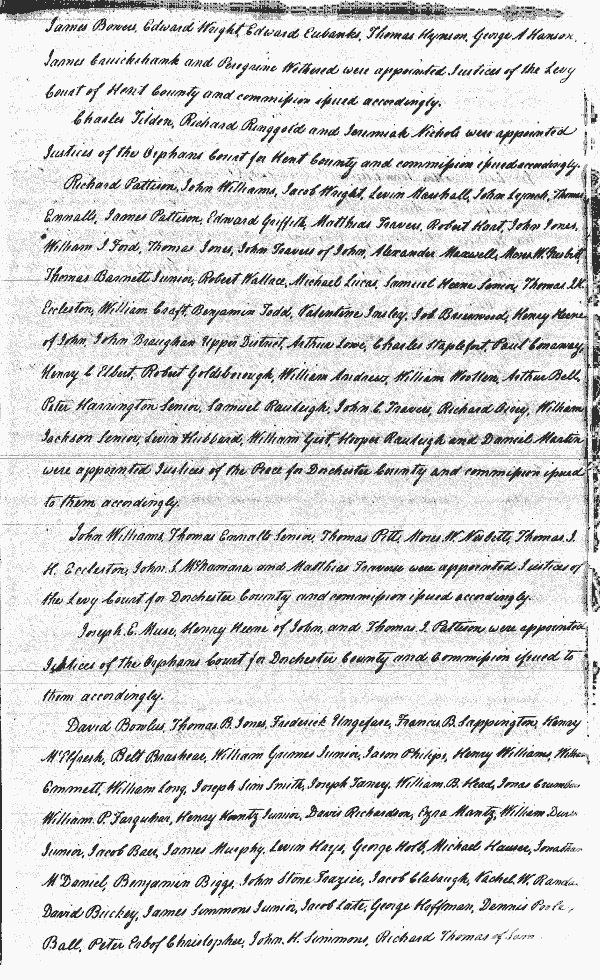 James Bowers, Edward Wright Edward Eubanks, Thomas Hynson, George A Hanson,
James Cruickshank and Peregrine Wethered were appointed Justices of the Levy
Court of Kent County and commission issued accordingly.
Charles Tilden, Richard Ringgold and Jeremiah Nichols were appointed
Justices of the Orphans Court for Kent County and commission issued accordingly.
Richard Pattison, John Williams, Jacob Wright, Levin Marshall, John Lynch, Thomas
Ennalls, James Pattison, Edward Griffith, Matthias Travers, Robert Hart, John Jones,
William J Ford, Thomas Jones, John Travers of John, Alexander Maxwell, Moses W. Nesbitt
Thomas Barnett Junior, Robert Wallace, Michael Lucas, Samuel Keene Senior, Thomas I.H.
Eccleston, William Craft, Benjamin Todd, Valentine Insley, Job Breerwood, Henry Keene
of John, John Braughan Upper District, Arthur Lowe, Charles Staplefort, Paul Conaway,
Henry C Elbert, Robert Goldsborough, William Andrews, William Woollen, Arthur Bell,
Peter Harrington Senior, Samuel Rawleigh, John C. Travers, Richard William
Jackson Senior, Levin Hubbard, William Geist, Hooper Rawleigh and Daniel Martin
were appointed Justices of the Peace for Dorchester County and commission issued
to them accordingly.
John Williams, Thomas Ennalls Senior, Thomas Pitt, Moses W. Nesbitt, Thomas. I.
H. Eccleston, John. S. McNamara and Matthias Traverse were appointed Justices of
the Levy Court for Dorchester County and commission issued accordingly
Joseph. E. Muse, Henry Keene of John, and Thomas. I. Pattison were appointed
Justices of the Orphans Court for Dorchester County and Commission issued to
them accordingly.
David Bowlus, Thomas. B. Jones, Frederick Francis. B. Sappington, Henry
McElfresh, Belt Brashear, William Grimes Junior, Jason Philips, Henry Williams, William
Emmett, William Long, Joseph Sim Smith, Joseph Taney, William. B. Head, Jonas Crumbac
William. P. Farquhar, Henry Koontz Junior, Davis Richardson, Ezra Mantz, William
Junior, Jacob Baer, James Murphy, Levin Hays, George Hoff, Michael Hauser, Jonathan
McDaniel, Benjamin Biggs, John Stone Frazier, Jacob Clabaugh, Vachel. W. Randa
David Buckey, James Simmons Junior, Jacob Late, George Hoffman, Dennis Poole,
Ball, Peter Erb of Christopher, John. H. Simmons, Richard Thomas of Sam